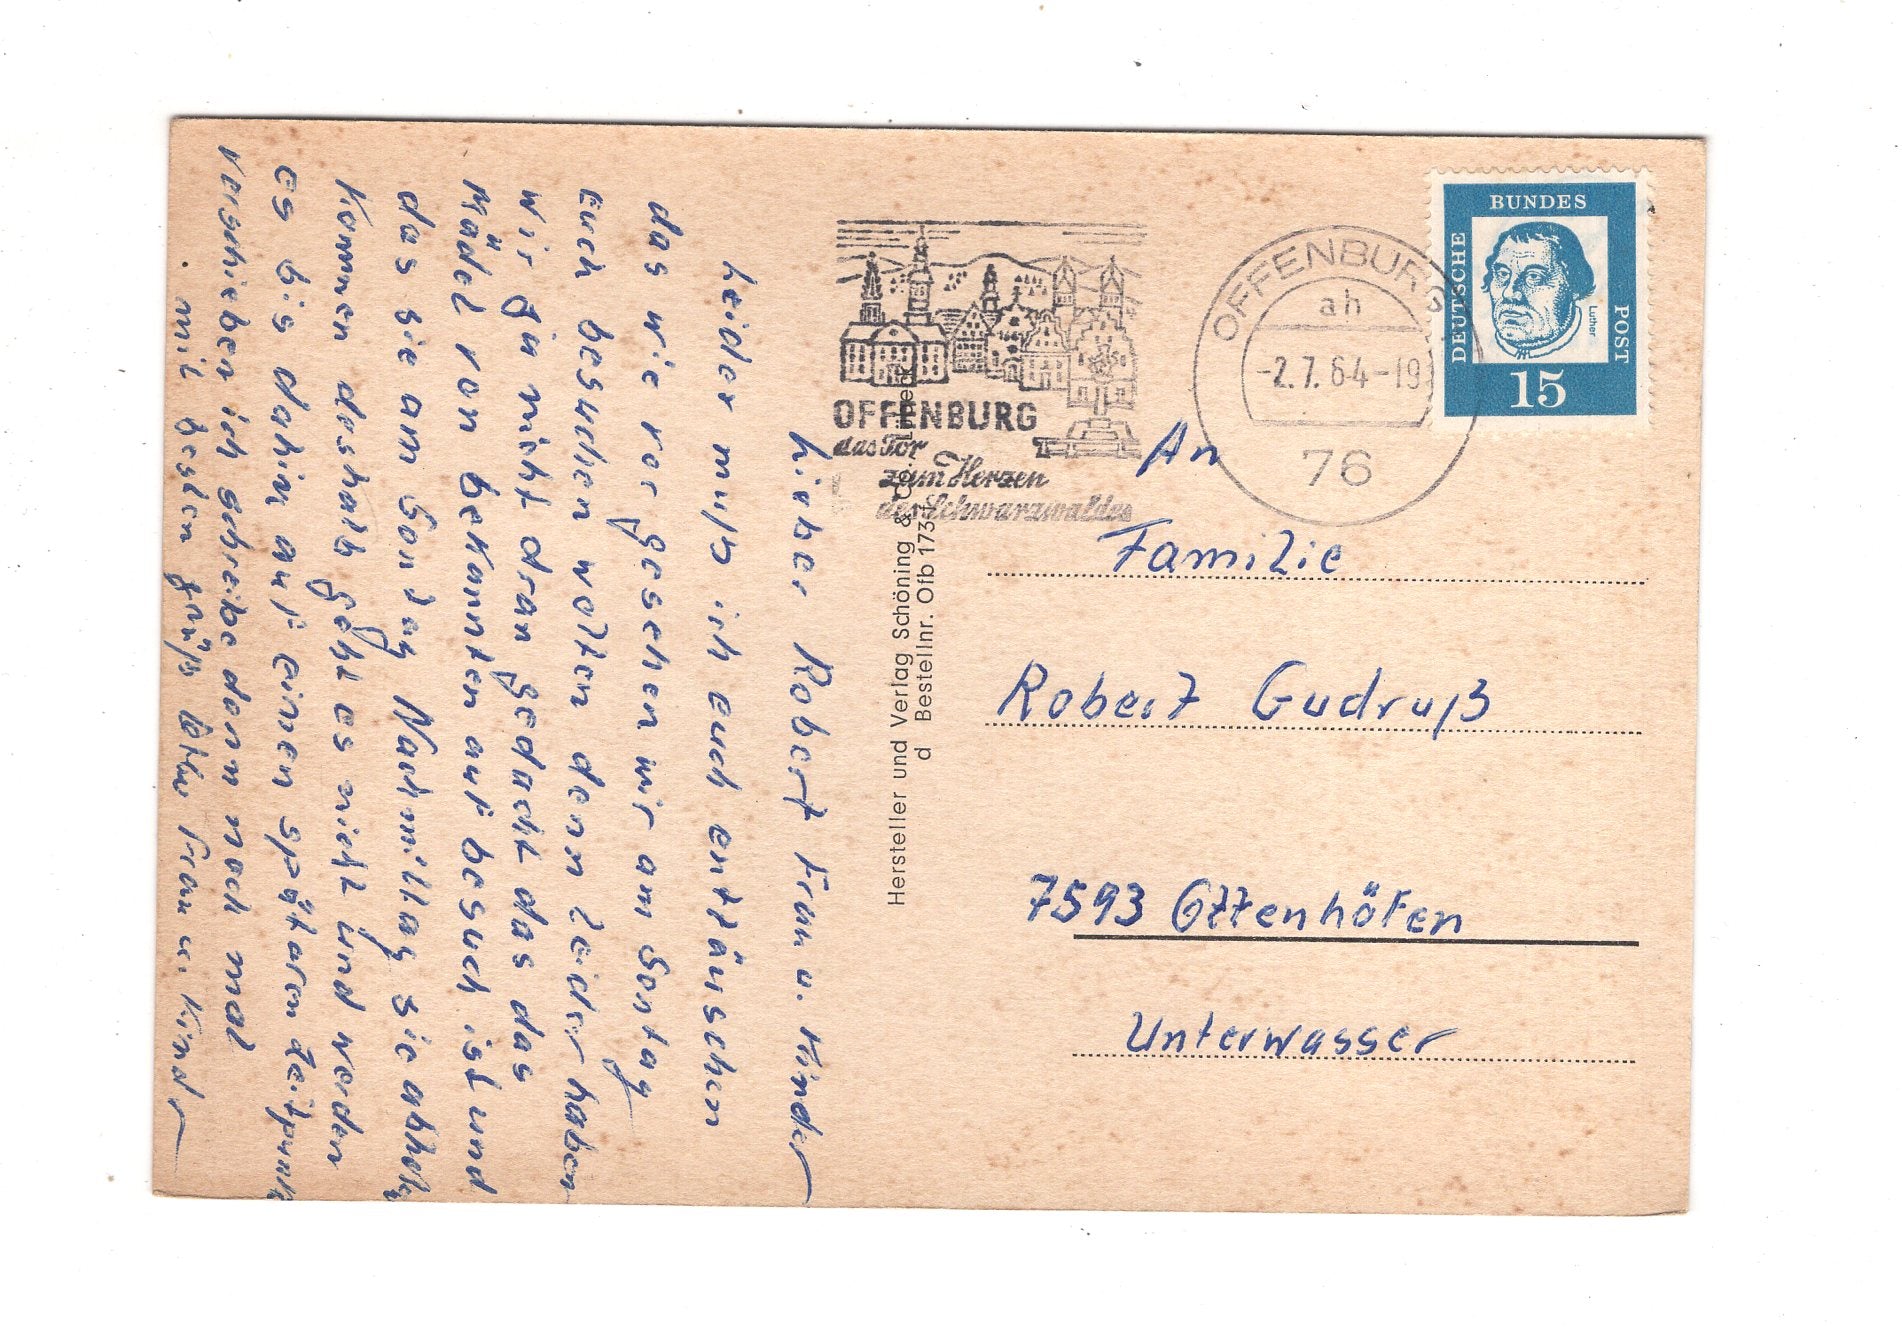 Lieber Robert Frau u. Kinder
leider muß ich euch enttäuschen
das wie vor gesehen wir am Sontag
Euch besuchen wolten denn leider haben
wir ja nicht dran gedacht das das
Mädel von bekannten auf besuch ist und
das sie am Sontag Nachmittag sie abholen
kommen deshalb geht es nicht und werden
es bis dahin auf einen spätaren Zeitpunk
verschieben ich schreibe denn noch mal
mit besten grüß Frau u. Kinder
Hersteller und Verlag Schöning & Co.
d Bestellnr. Ofb 173
OFFENBURG
das Tor
zum Herzen
des Schwarzwaldes
OFFENBURG
ah
-2.7.64-19
76
DEUTSCHE
BUNDES
POST
Luther
15
An
Familie
Robert Gudruß
7593 Ottenhöfen
Unterwasser